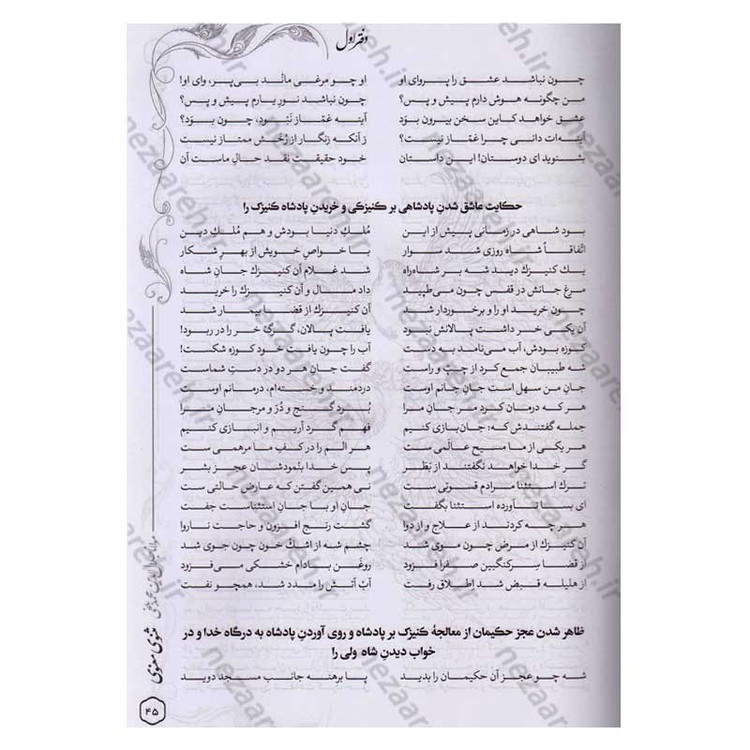 دفتر اول
چون نباشد عشق را پروای او    او چو مرغی ماند بی‌پر، وای او!
من چگونه هوش دارم پیش و پس؟    چون نباشد نور یارم پیش و پس؟
عشق خواهد کاین سخن بیرون بوَد    آینه غمّاز نَبْوَد، چون بوَد؟
آینه‌ات دانی چرا غمّاز نیست؟    ز آنکه زنگار از رُخَش ممتاز نیست
بشنوید ای دوستان! این داستان    خود حقیقت نقد حالِ ماست آن
حکایت عاشق شدنِ پادشاهی بر کنیزکی و خریدنِ پادشاه کنیزک را
بود شاهی در زمانی پیش از این    مُلکِ دنیا بودش و هم مُلکِ دین
اتّفاقاً شاه روزی شد سوار    با خواصِ خویش از بهرِ شکار
یک کنیزک دید شه بر شاه‌راه    شد غلامِ آن کنیزک جانِ شاه
مرغِ جانش در قفس چون می‌طپید    داد مال و آن کنیزک را خرید
چون خرید او را و برخوردار شد    آن کنیزک از قضا بیمار شد
آن یکی خر داشت پالانش نبود    یافت پالان، گرگ خر را در ربود!
کوزه بودش، آب می‌نامد به دست    آب را چون یافت خود کوزه شکست!
شه طبیبان جمع کرد از چپّ و راست    گفت جانِ هر دو در دستِ شماست
جانِ من سهل است جانِ جانم اوست    دردمند و خسته‌ام، درمانم اوست
هر که درمان کرد مر جانِ مرا    بُرد گنج و دُرّ و مرجانِ مرا
جمله گفتندش که: جان‌بازی کنیم    فهم گرد آریم و انبازی کنیم
هر یکی از ما مسیحِ عالمی ست    هر الم را در کفِ ما مرهمی ست
گر خدا خواهد نگفتند از بَطَر    پس خدا بنْمودشان عجزِ بشر
ترکِ استثنا مرادم قسوتی ست    نی همین گفتن که عارض حالتی ست
ای بسا ناآورده استثنا بگفت    جانِ او با جانِ استثناست جفت
هر چه کردند از علاج و از دوا    گشت رنج افزون و حاجت ناروا
آن کنیزک از مرض چون موی شد    چشمِ شه از اشکِ خون چون جوی شد
از قضا سِرکنگبین صفرا فزود    روغنِ بادام خشکی می‌فزود
از هلیله قبض شد اطلاق رفت    آبْ آتش را مدد شد، همچو نفت
ظاهر شدن عجز حکیمان از معالجهٔ کنیزک بر پادشاه و روی آوردنِ پادشاه به درگاه خدا و در
خواب دیدنِ شاه ولی را
شه چو عجزِ آن حکیمان را بدید    پا برهنه جانبِ مسجد دوید
مثنوی معنوی
۴۵
nezaareh.ir